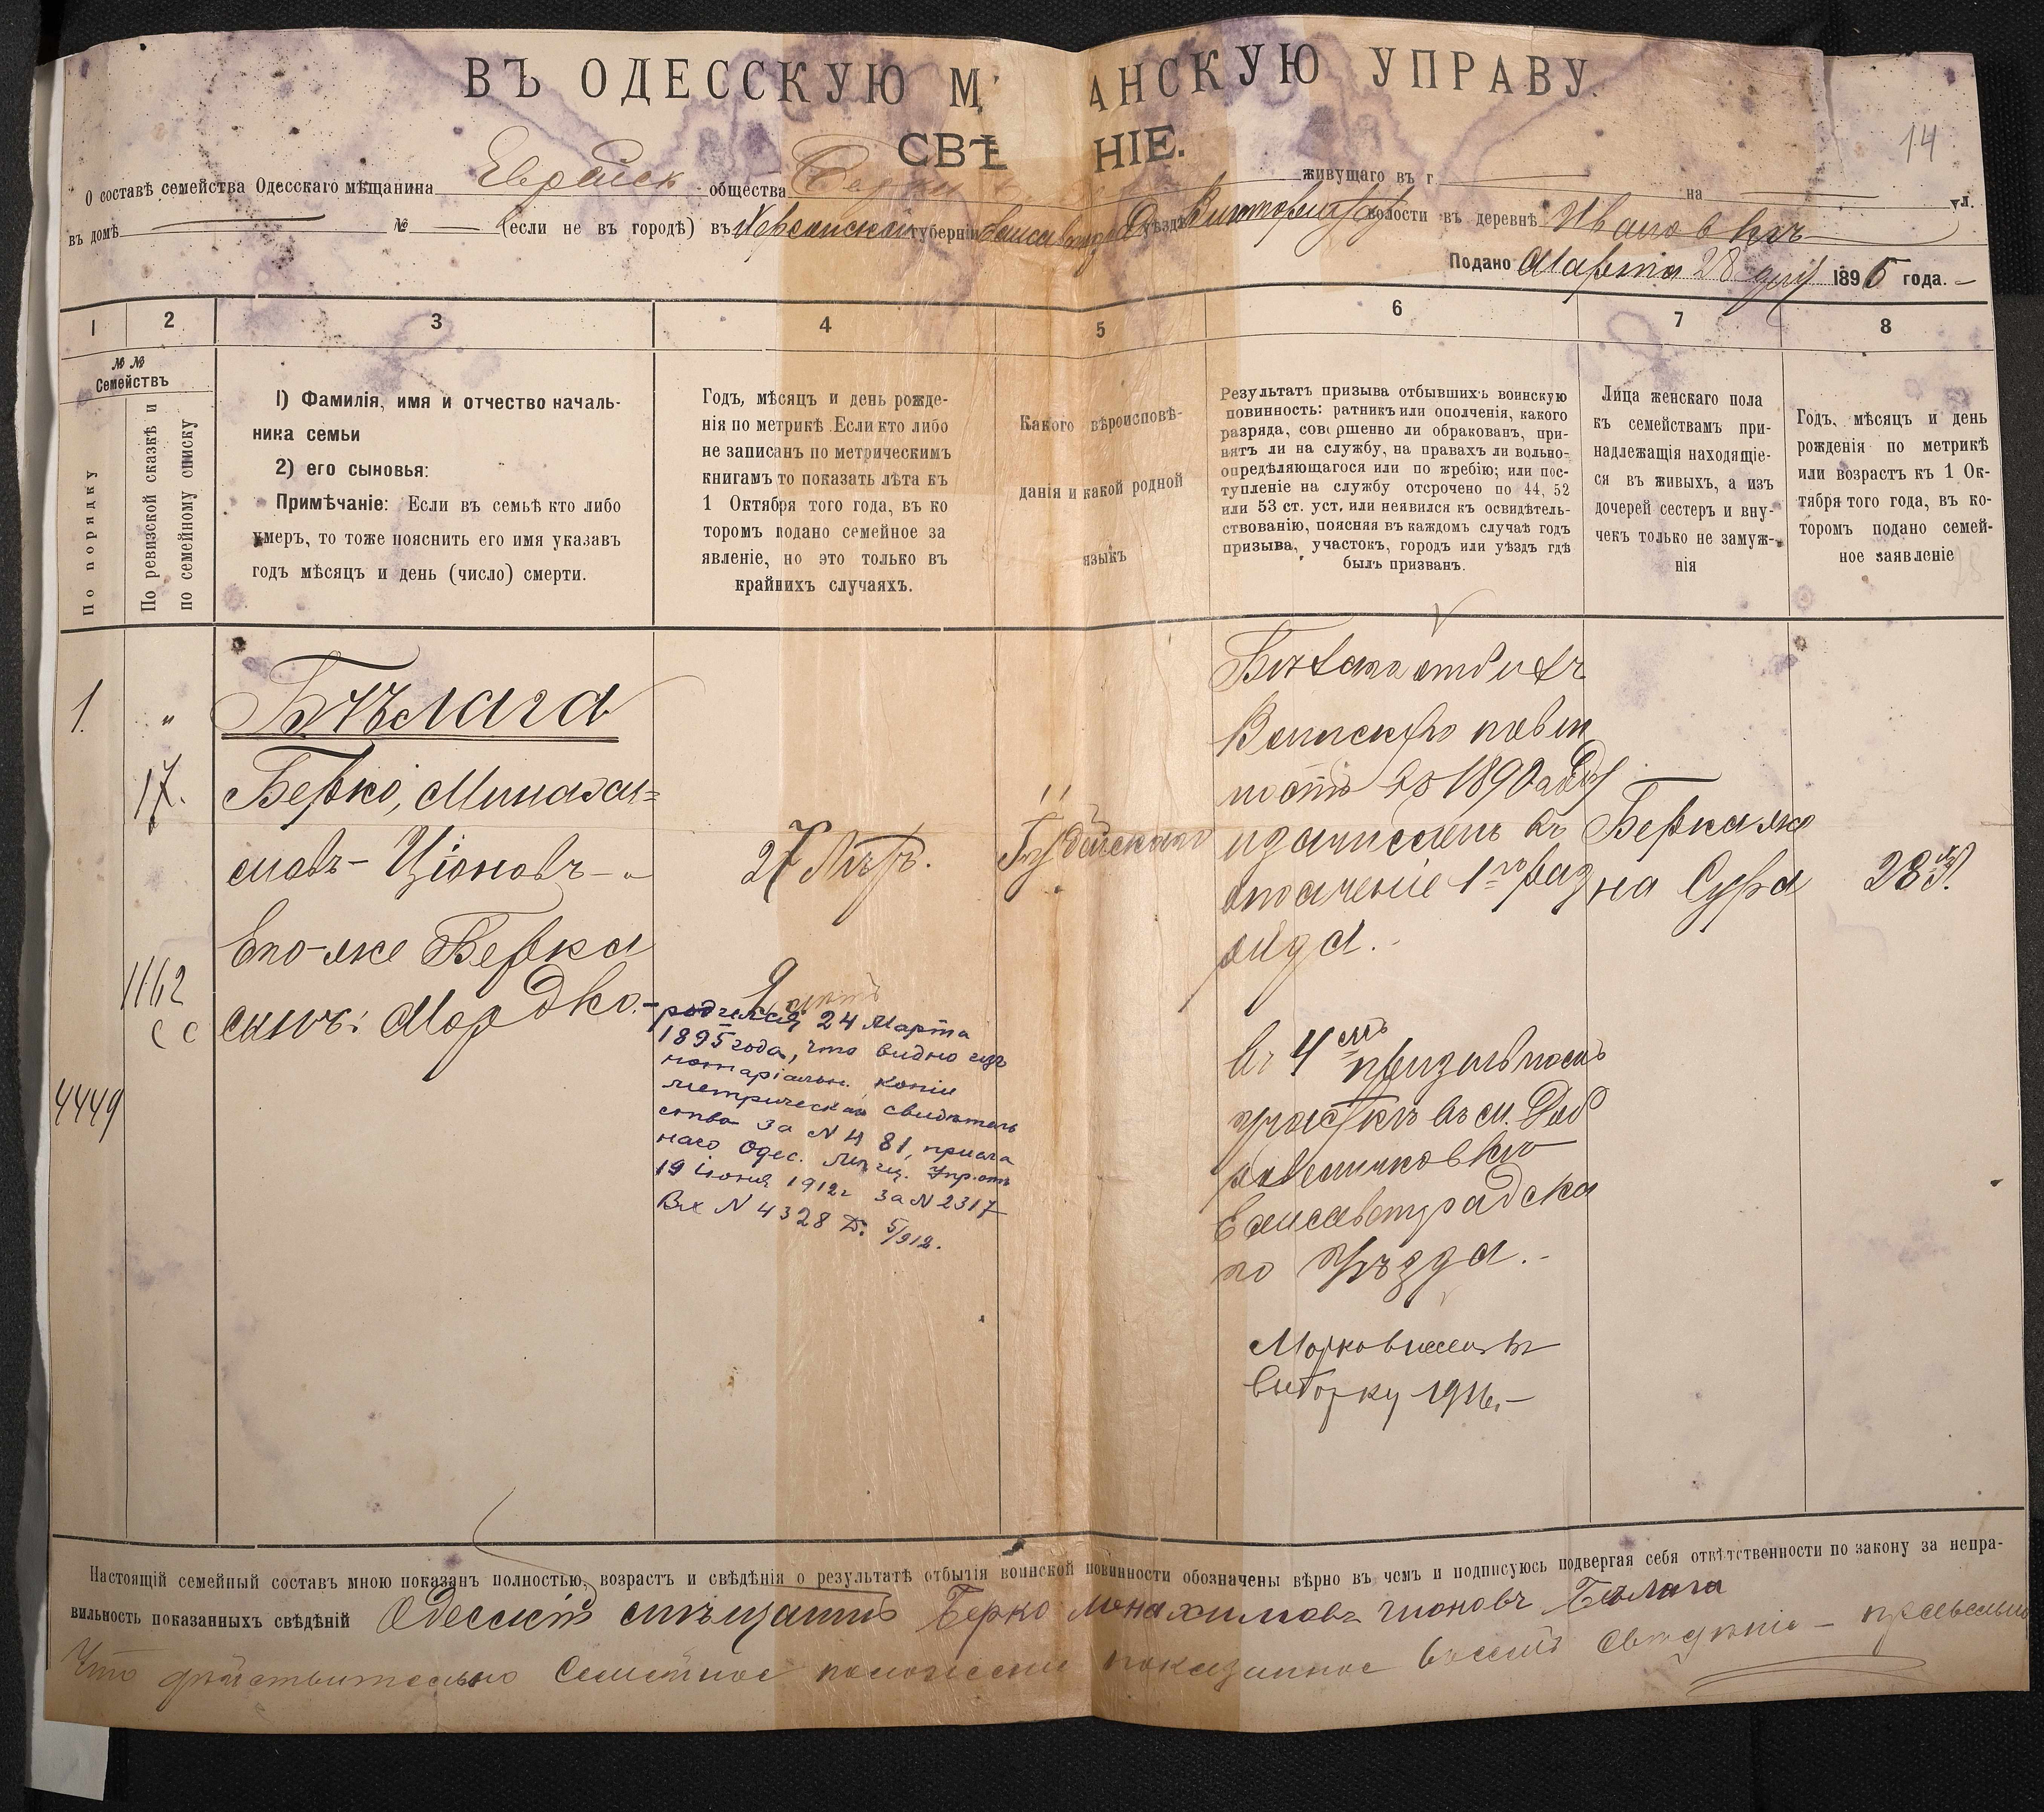 ВЪ ОДЕССКУЮ М АНСКУЮ УПРАВУ.
СВѢ НІЕ.
14
О составѣ семейства Одесскаго мѣщанина Еврейск общества живущаго въ г на ул.
въ домѣ № (если не въ городѣ) въ Херсонской губерніи уѣзда волости въ деревнѣ Ивановкѣ
Подано Марта 28 дня 1896 года.
1 2 3 4 5 6 7 8
№№
Семействъ
По порядку
По ревизской сказкѣ и
по семейному списку
1) Фамилія, имя и отчество началь-
ника семьи
2) его сыновья:
Примѣчаніе: Если въ семьѣ кто либо
умеръ, то тоже пояснить его имя указавъ
годъ мѣсяцъ и день (число) смерти.
Годъ, мѣсяцъ и день рожде-
нія по метрикѣ. Если кто либо
не записанъ по метрическимъ
книгамъ то показать лѣта къ
1 Октября того года, въ ко
торомъ подано семейное за
явленіе, но это только въ
крайнихъ случаяхъ.
Какого вѣроисповѣ-
данія и какой родной
языкъ
Результатъ призыва отбывшихъ воинскую
повинность: ратникъ или ополченія, какого
разряда, совершенно ли обракованъ, при-
нятъ ли на службу, на правахъ ли вольно-
опредѣляющагося или по жребію; или пос-
тупленіе на службу отсрочено по 44, 52
или 53 ст. уст. или неявился къ освидѣтель-
ствованію, поясняя въ каждомъ случаѣ годъ
призыва, участокъ, городъ или уѣздъ гдѣ
былъ призванъ.
Лица женскаго пола
къ семействамъ при-
надлежащія находящіе-
ся въ живыхъ, а изъ
дочерей сестеръ и вну-
чекъ только не замуж-
нія
Годъ, мѣсяцъ и день
рожденія по метрикѣ
или возрастъ къ 1 Ок-
тября того года, въ ко-
торомъ подано семей-
ное заявленіе
1. "
Бѣлага
17.
Берко, Минахи=
мовъ - Ціоновъ -
27 Лѣтъ.
Іудейскаго
Его-же Берка
сынъ: Мордко.-
1162
с с
4449
родился 24 Марта
1895 года, что видно изъ
нотаріальн. копіи
метрическаго свидѣтель
ства за N 481, присла
наго Одес. Мѣщ. Упр. отъ
19 іюня 1912г за N 2317
Вх N 4328 5/912.
Бѣлага отбилъ
Воинскую повин
ность въ 1890 году
и зачисленъ въ
ополченіе 1го раз
ряда.
въ 4мъ призывномъ
участкѣ въ м.
Елисаветградска
го Уѣзда.
1916.
Берка же
на Сура
28 л.
Настоящій семейный составъ мною показанъ полностью, возрастъ и свѣдѣнія о результатѣ отбытія воинской повинности обозначены вѣрно въ чемъ и подписуюсь подвергая себя отвѣтственности по закону за непра-
вильность показанныхъ свѣдѣній Одесскій мѣщанинъ Берко Менахимовъ Ціоновъ Бѣлага
Что дѣйствительно Семейное положеніе показанное въ семъ Свѣдѣніи - правильно